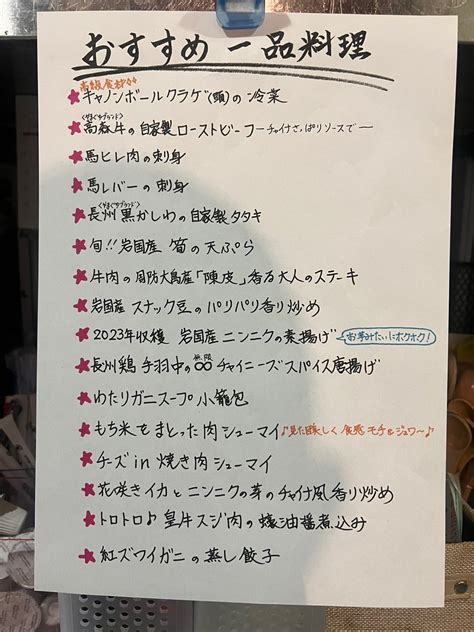 おすすめ一品料理
高級食材
★キャノンボールクラゲ(頭)の冷菜
<やまぐちブランド>
★高森牛の自家製ローストビーフーチャイナさっぱりソースでー
★馬ヒレ肉の刺身
★馬レバーの刺身
<やまぐちブランド>
★長州黒かしわの自家製タタキ
★旬!!岩国産 筍の天ぷら
★牛肉の周防大島産「陳皮」香る大人のステーキ
★岩国産スナック豆のパリパリ香り炒め
★2023年収穫 岩国産ニンニクの素揚げ お芋みたいにホクホク!
無限
★長州鶏 手羽中の∞チャイニーズスパイス唐揚げ
★わたりガニスープ小籠包
★もち米をまとった肉シューマイ♪見た目美しく食感モチ&ジュワ〜♪
★チーズin焼き肉シューマイ
★花咲きイカとニンニクの芽のチャイナ風香り炒め
★トロトロ♪皇牛スジ肉の蠔油醤煮込み
★紅ズワイガニの蒸し餃子